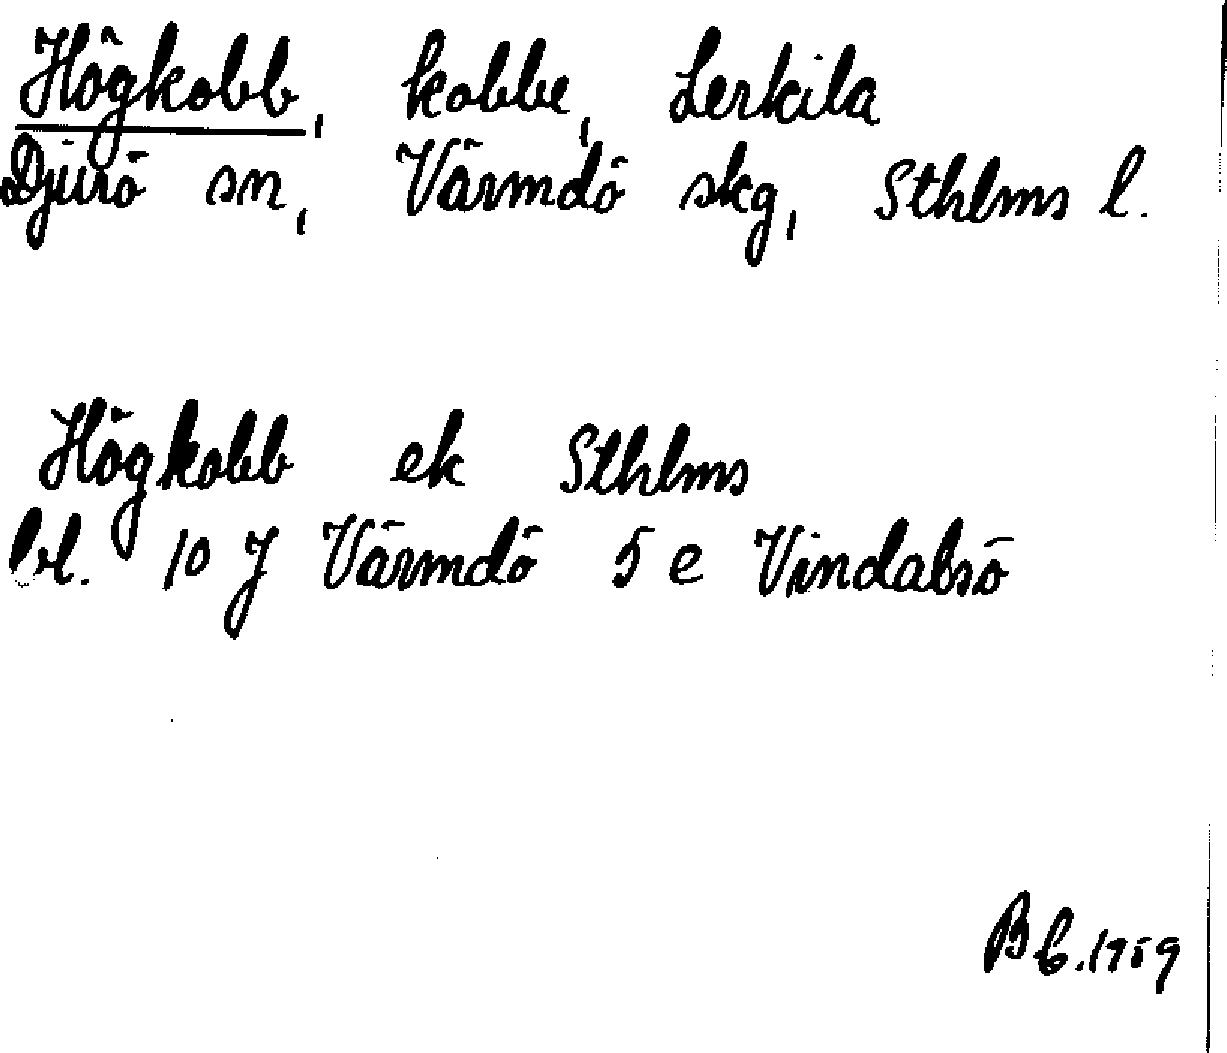 Högkobb, kobbe, Lerkila
Djurö sn, Värmdö skg, Sthlms l.
Högkobb ek Sthlms
bl. 10 J Värmdö 5 e Vindalsö
B b. 1959